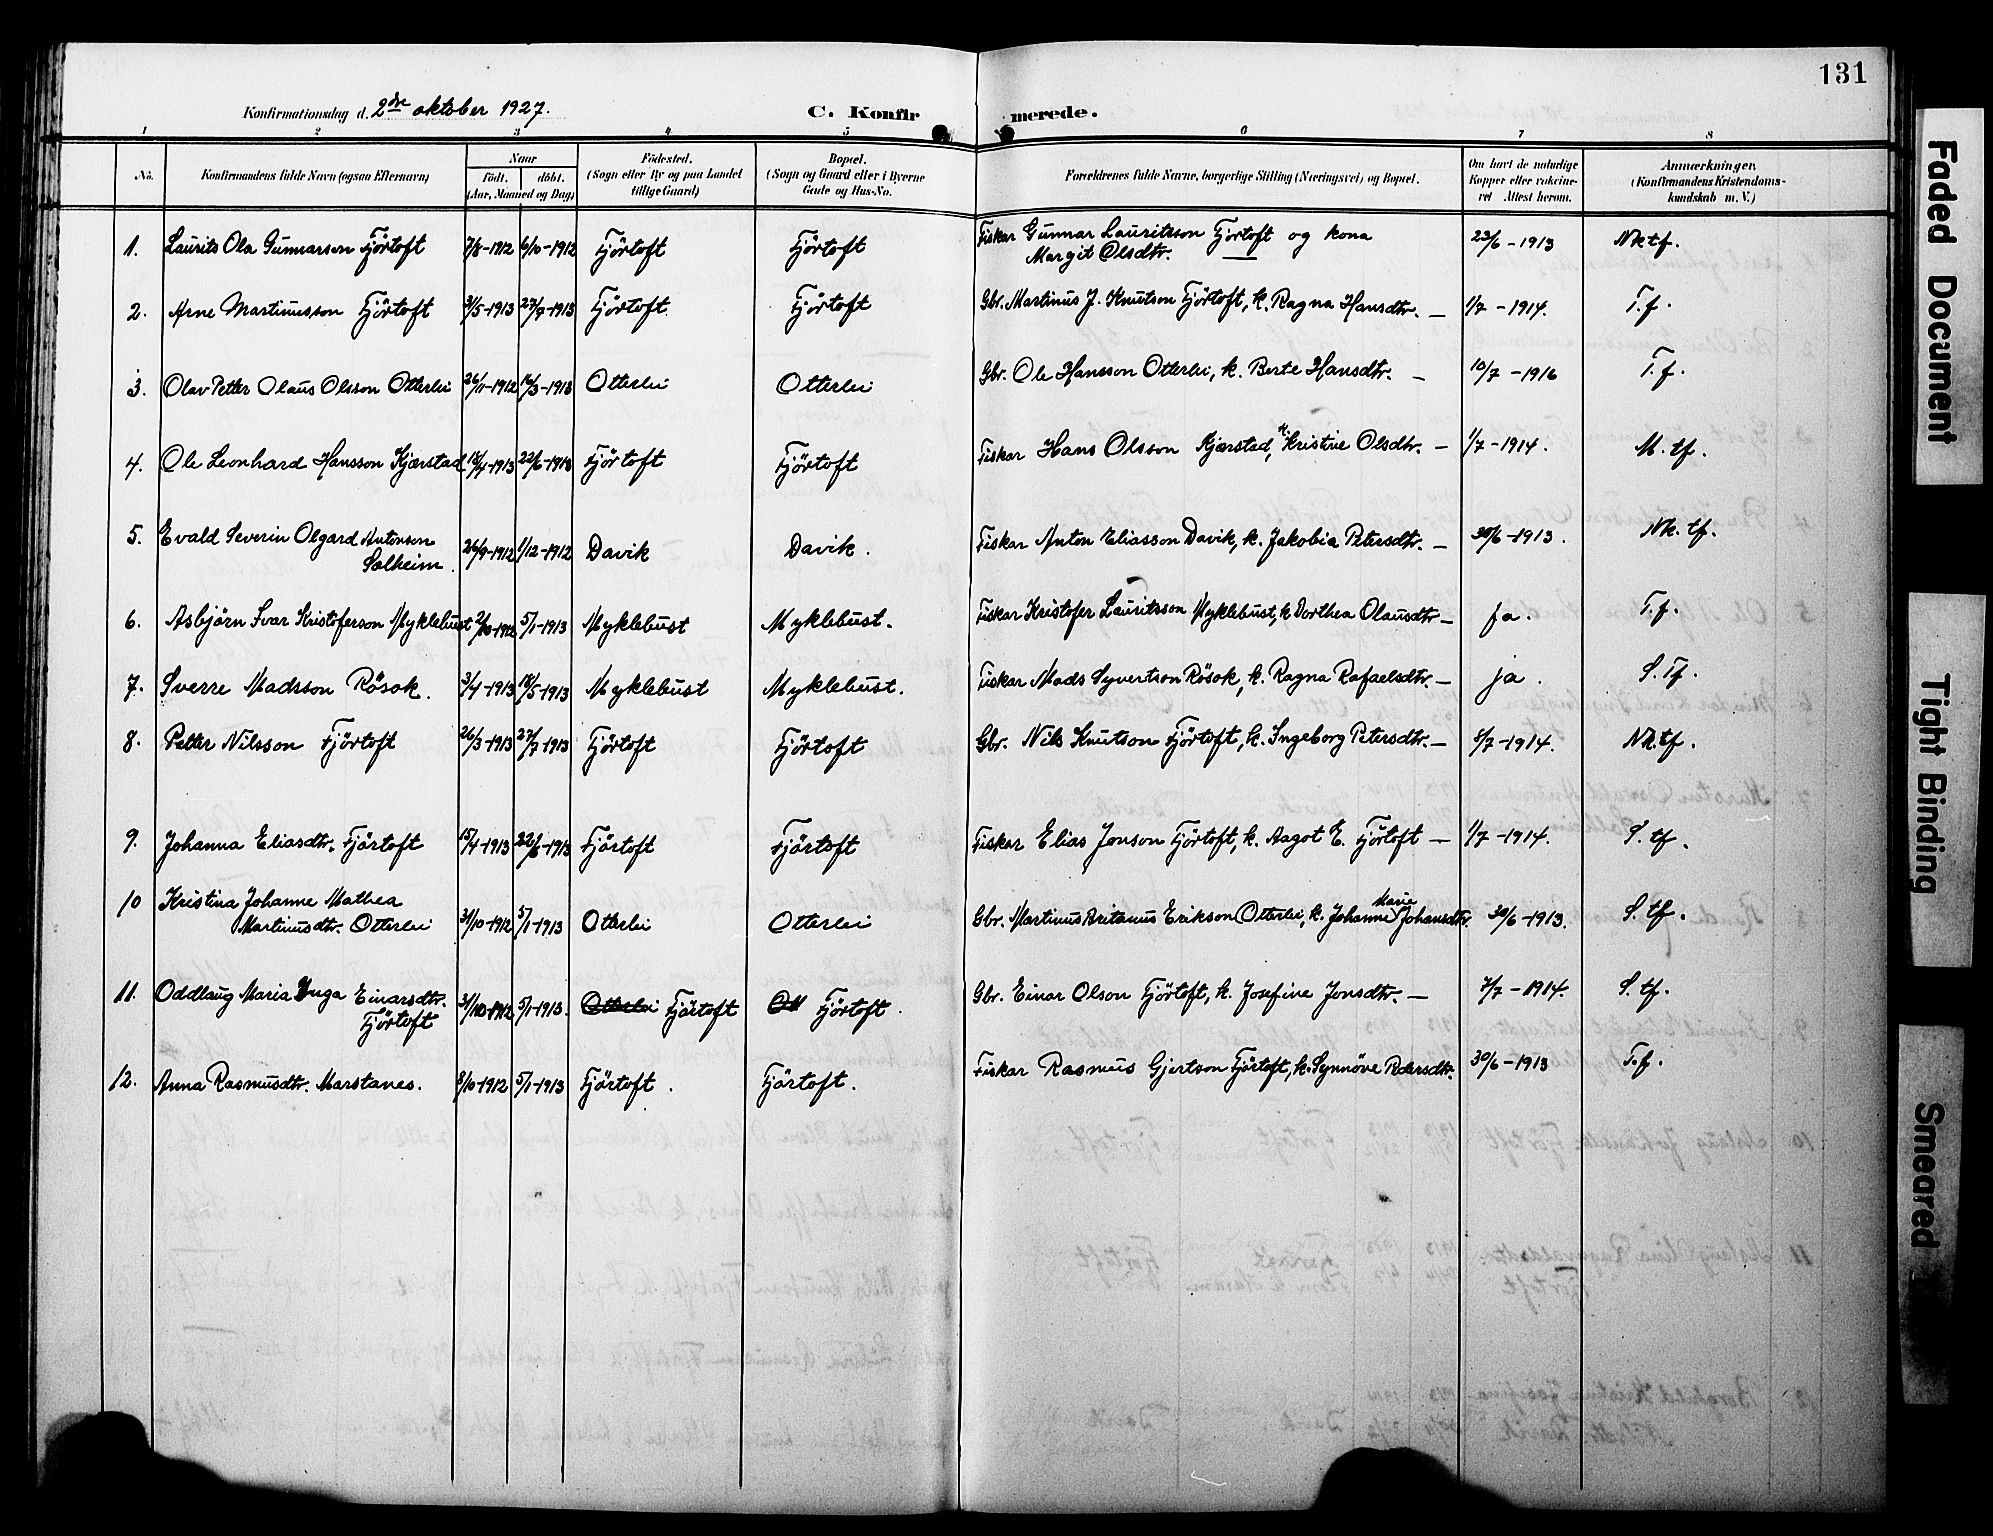 131
Konfirmationsdag d. 2dre oktober 1927.
C. Konfirmerede.
1 2 3 4 5 6 7 8
No.
Konfirmandens fulde Navn (ogsaa Efternavn)
Naar
født. døbt.
(Aar, Maaned og Dag)
Fødested.
(Sogn eller By og paa Landet
tillige Gaard)
Bopæl.
(Sogn og Gaard eller i Byerne
Gade og Hus-No.
Forældrenes fulde Navne, borgerlige Stilling (Næringsvei) og Bopæl.
Om havt de naturlige
Kopper eller vakcine-
ret Attest herom.
Anmærkninger.
(Konfirmandens Kristendoms-
kundskab m. V.)
1. Laurits Ola Gunnarson Fjörtoft 7/8-1912 6/10-1912 Fjörtoft Fjörtoft Fiskar Gunnar Lauritsson Fjörtoft og kona 23/6-1913 Nktf.
Margit Olsdtr. —
2. Arne Martinusson Fjörtoft 3/5-1913 27/7-1913 Fjörtoft Fjörtoft Gbr. Martinus J. Knutson Fjörtoft, k. Ragna Hansdtr. — 1/7-1914. T.f.
3. Olav Petter Olaus Olsson Otterlei 26/11-1912 16/3-1913 Otterlei Otterlei Gbr. Ole Hansson Otterlei, k. Berte Hansdtr. — 10/7-1916 T.f.
4. Ole Leonhard Hansson Kjærstad 18/4-1913 22/6-1913 Fjörtoft Fjörtoft Fiskar Hans Olsson Kjærstad, k. Kristine Olsdtr. — 1/7-1914. M.tf.
5. Evald Severin Olgard Antonson
Solheim. 26/9-1912 1/12-1912 Davik Davik. Fiskar Anton Eliasson Davik, k. Jakobia Petersdtr. — 30/6-1913. Nk.tf.
6. Asbjörn Ivar Kristoferson Myklebust 2/10-1912 5/1-1913 Myklebust Myklebust. Fiskar Kristofer Lauritsson Myklebust, k Dorthea Olausdtr — ja. T.f.
7. Sverre Madsson Rösok. 3/4-1913 18/5-1913 Myklebust Myklebust. Fiskar Mads Syvertson Rösok, k. Ragna Rafaelsdtr. — ja. S.Tf.
8. Petter Nilsson Fjörtoft 26/3-1913 27/7-1913 Fjörtoft Fjörtoft Gbr. Nils Knutson Fjörtoft, k. Ingeborg Petersdtr. — /7-1914. Nk.tf.
9. Johanna Eliasdtr. Fjörtoft 15/4-1913 22/6-1913 Fjörtoft Fjörtoft Fiskar Elias Jonson Fjörtoft, k. Aagot E. Fjörtoft — 1/7-1914. S.tf.
10 Kristina Johanne Mathea
Martinusdtr. Otterlei 31/10-1912 5/1-1913 Otterlei Otterlei Gbr. Martinus Britanus Erikson Otterlei, k. Johanne Marie Johansdtr. 30/6-1913. S.tf.
11. Oddlaug Maria Inga Einarsdtr.
Fjörtoft 31/10-1912 5/1-1913. Otterlei Fjörtoft Ott Fjörtoft. Gbr. Einar Olson Fjörtoft, k. Josefine Jonsdtr. — 7/7-1914. S.tf.
12. Anna Rasmusdtr. Marstanes. 8/10-1912 5/1-1913 Fjörtoft. Fjörtoft. Fiskar Rasmus Gjertson Fjörtoft, k. Synnöve Pedersdtr. 30/6-1913 T.f.
Faded Document
Tight Binding
Smeared